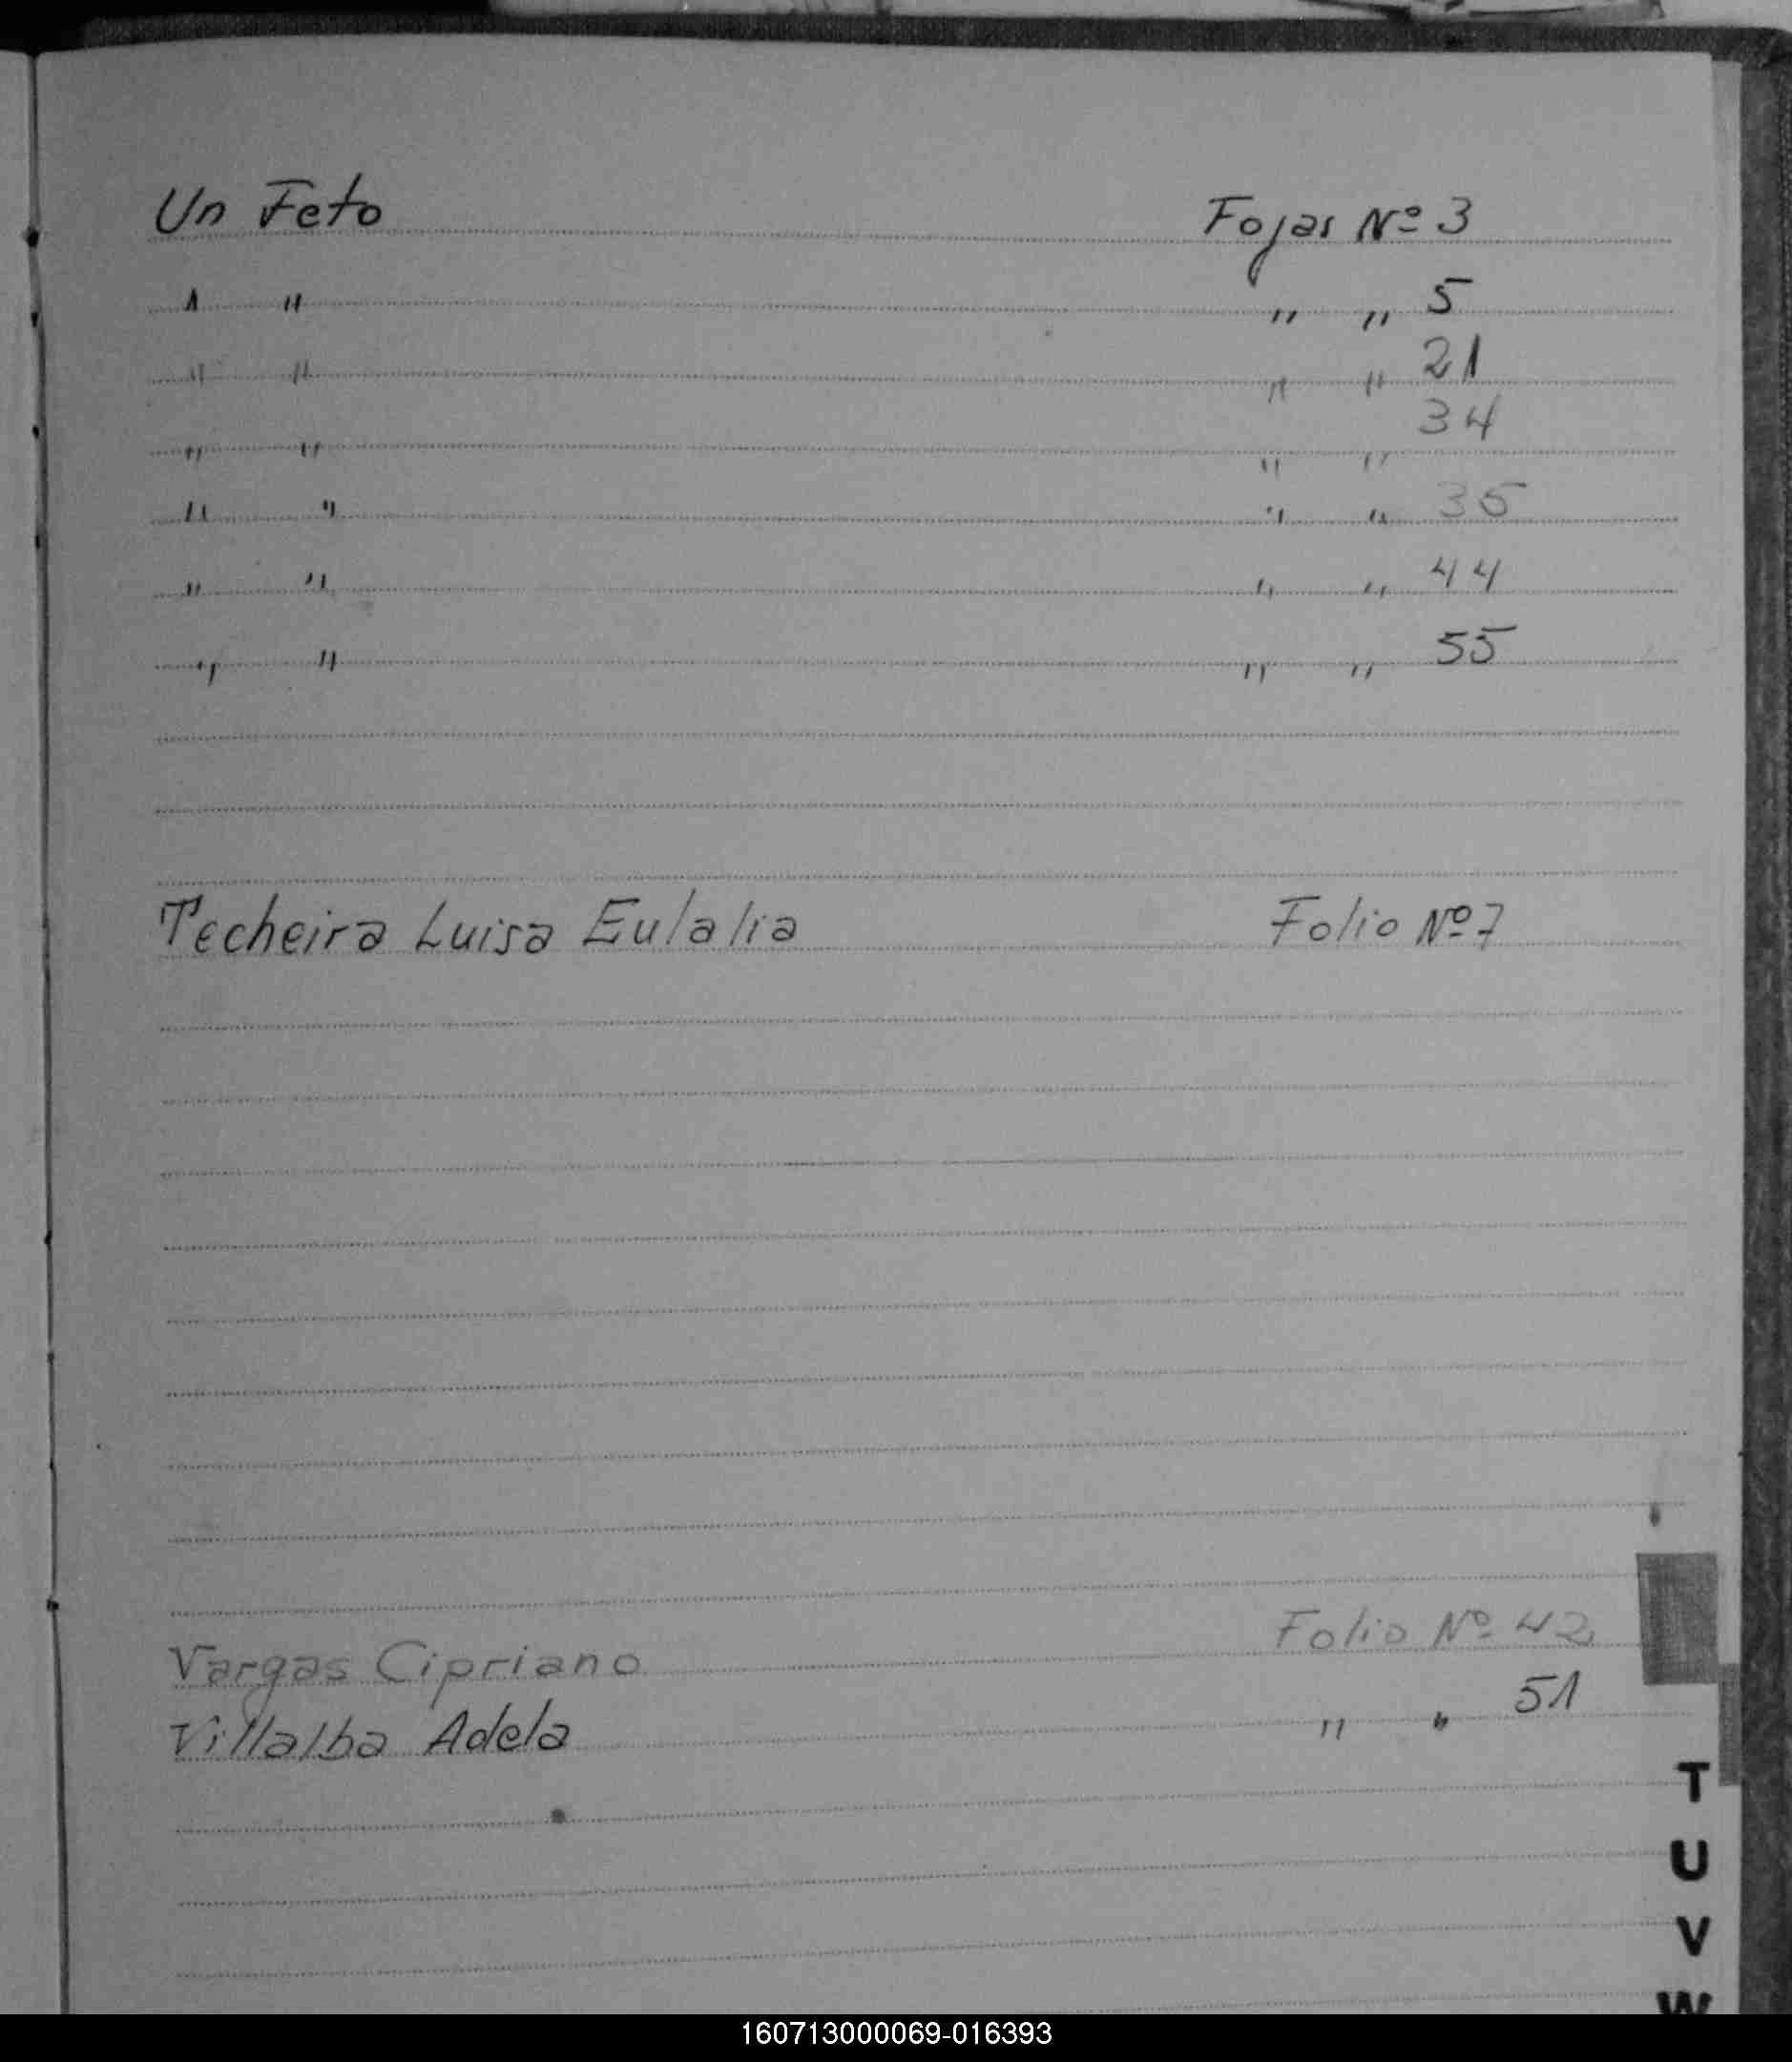 Un Feto Fojas Nº 3
1 " " " 5
" " " " 21
" " " " 34
" " " " 35
" " " " 44
" " " " 55
Techeira Luisa Eulalia Folio Nº 7
Vargas Cipriano Folio Nº 42
Villalba Adela " " 51
T
U
V
W
160713000069-016393